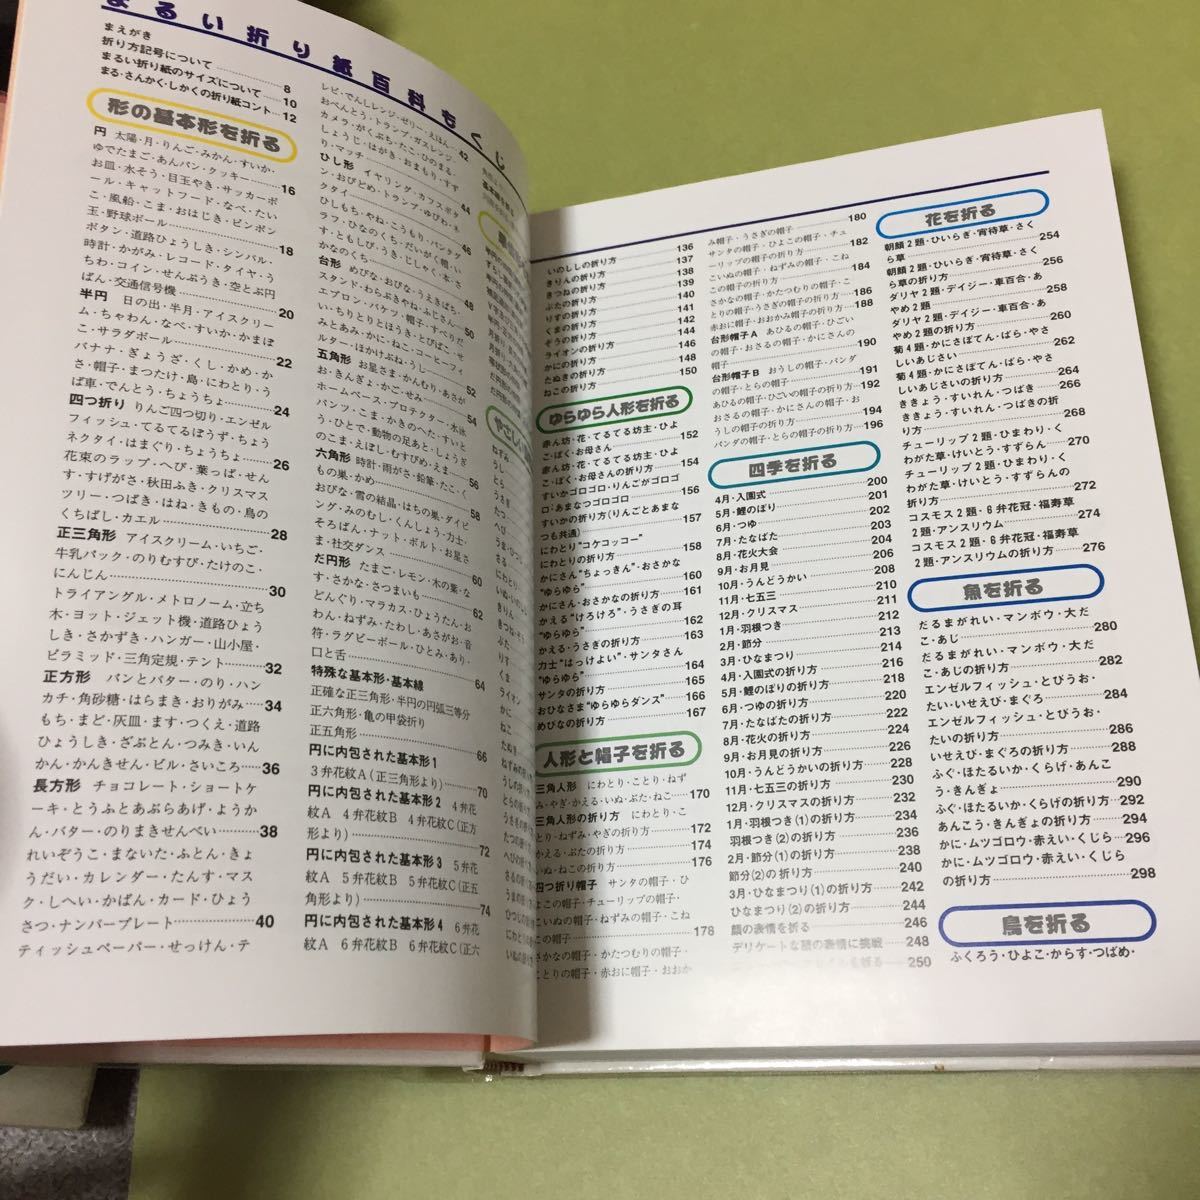 まるい折り紙百科もくじ
まえがき
折り方記号について……8
まるい折り紙のサイズについて……10
まる・さんかく・しかくの折り紙コント…12
形の基本形を折る
円 太陽・月・りんご・みかん・すいか・
ゆでたまご・あんパン・クッキー……16
お皿・水そう・目玉やき・サッカーボ
ール・キャットフード・なべ・たい
こ・風船・こま・おはじき・ピンポン
玉・野球ボール……18
ボタン・道路ひょうしき・シンバル・
時計・かがみ・レコード・タイヤ・う
ちわ・コイン・せんぷうき・空とぶ円
ばん・交通信号機……20
半円 日の出・半月・アイスクリー
ム・ちゃわん・なべ・すいか・かまぼ
こ・サラダボール……22
バナナ・ぎょうざ・くし・かめ・か
さ・帽子・まつたけ・島・にわとり・う
ば車・でんとう・ちょうちょ……24
四つ折り りんご四つ切り・エンゼル
フィッシュ・てるてるぼうず・ちょう
ネクタイ・はまぐり・ちょうちょ……26
花束のラップ・へび・葉っぱ・せん
す・すげがさ・秋田ふき・クリスマス
ツリー・つばき・はね・きもの・鳥の
くちばし・カエル……28
正三角形 アイスクリーム・いちご・
牛乳パック・のりむすび・たけのこ・
にんじん……30
トライアングル・メトロノーム・立ち
木・ヨット・ジェット機・道路ひょう
しき・さかずき・ハンガー・山小屋・
ピラミッド・三角定規・テント……32
正方形 パンとバター・のり・ハン
カチ・角砂糖・はらまき・おりがみ……34
もち・まど・灰皿・ます・つくえ・道路
ひょうしき・ざぶとん・つみき・いん
かん・かんきせん・ビル・さいころ……36
長方形 チョコレート・ショートケ
ーキ・とうふとあぶらあげ・ようか
ん・バター・のりまきせんべい……38
れいぞうこ・まないた・ふとん・きょ
うだい・カレンダー・たんす・マス
ク・しへい・かばん・カード・ひょう
さつ・ナンバープレート……40
ティッシュペーパー・せっけん・テ
レビ・でんしレンジ・ゼリー・えほん……42
おべんとう・トランプ・ガスレンジ・
カメラ・がくぶち・たこ・ひのまる・
しょうじ・はがき・おまもり・すず
り・マッチ……44
ひし形 イヤリング・カフスボタ
ン・おびどめ・トランプ・ゆびわ・ネ
クタイ……46
ひしもち・やね・こうもり・パンタグ
ラフ・ひなのくち・だいがく帽・い
す・ともしび・うき・じしゃく・本・さ
かなのくち……48
台形 めびな・おびな・うえきばち・
スタンド・わらぶきやね・ふじさん……50
エプロン・バケツ・帽子・すべりだ
い・ちりとりとほうき・とびばこ・せ
みとあみ・かに・ねこ・コーヒーフィ
ルター・ほかけぶね・うし……52
五角形 お星さま・かんむり・あさが
お・きんぎょ・かご・せみ……54
ホームベース・プロテクター・水泳
パンツ・こま・かきのへた・すいと
う・ひとで・動物の足あと・しょうぎ
のこま・えぼし・むすびめ・えま……56
六角形 時計・雨がさ・鉛筆・たこ・く
もの巣・かめ……58
おびな・雪の結晶・はちの巣・ダイビ
ング・みのむし・くんしょう・力士・
そろばん・ナット・ボルト・お星さ
ま・社交ダンス……60
だ円形 たまご・レモン・木の葉・な
す・さかな・さつまいも……62
どんぐり・マラカス・ひょうたん・お
わん・ねずみ・たわし・あさがお・音
符・ラグビーボール・ひとみ・あり・
口と舌……64
特殊な基本形・基本線
正確な正三角形・半円の円弧三等分
正六角形・亀の甲袋折り
正五角形……66
円に内包された基本形1
3弁花紋A(正三角形より)……70
円に内包された基本形2 4弁花
紋A 4弁花紋B 4弁花紋C(正方
形より)……72
円に内包された基本形3 5弁花
紋A 5弁花紋B 5弁花紋C(正五
角形より)……74
円に内包された基本形4 6弁花
紋A 6弁花紋B 6弁花紋C(正六
……136
いのししの折り方……137
きりんの折り方……138
きつねの折り方……139
ぶたの折り方……140
りすの折り方……141
くまの折り方……142
ぞうの折り方……144
ライオンの折り方……146
かにの折り方……148
たぬきの折り方……150
ねこの折り方
ゆらゆら人形を折る
赤ん坊・花・てるてる坊主・ひよ
こ・ぼく・お母さん……152
赤ん坊・花・てるてる坊主・ひよ
こ・ぼく・お母さんの折り方……154
すいかゴロゴロ・りんごがゴロゴ
ロ・あまなつゴロゴロ……156
すいかの折り方(りんごとあまな
つも共通)……157
にわとり“コケコッコー”
にわとりの折り方……158
かにさん“ちょっきん”・おさかな
“ゆらゆら”……160
かにさん・おさかなの折り方……161
かえる“けろけろ”・うさぎの耳
“ゆらゆら”……162
かえる・うさぎの折り方……163
力士“はっけよい”・サンタさん
“ゆらゆら”……164
サンタの折り方……165
おひなさま“ゆらゆらダンス”……166
めびなの折り方……167
人形と帽子を折る
三角人形 にわとり・ことり・ねず
み・やぎ・かえる・いぬ・ぶた・ねこ……170
三角人形の折り方 にわとり・こ
とり・ねずみ・やぎの折り方……172
かえる・ぶたの折り方……174
いぬ・ねこの折り方……176
四つ折り帽子 サンタの帽子・ひ
よこの帽子・チューリップの帽子・
こいぬの帽子・ねずみの帽子・こね
この帽子……178
さかなの帽子・かたつむりの帽子・こ
とりの帽子・赤おに帽子・おおか
み帽子・うさぎの帽子……180
サンタの帽子・ひよこの帽子・チュ
ーリップの帽子の折り方……182
こいぬの帽子・ねずみの帽子・こね
この帽子の折り方……184
さかなの帽子・かたつむりの帽子・こ
とりの帽子・うさぎの帽子の折り方……186
赤おに帽子・おおかみ帽子の折り方……188
台形帽子A あひるの帽子・ひごい
の帽子・おさるの帽子・かにさんの
帽子……190
台形帽子B おうしの帽子・パンダ
の帽子・とらの帽子……191
あひるの帽子・ひごいの帽子の折り方……192
おさるの帽子・かにさんの帽子・お
うしの帽子の折り方……194
パンダの帽子・とらの帽子の折り方……196
四季を折る
4月・入園式……200
5月・鯉のぼり……201
6月・つゆ……202
7月・たなばた……203
8月・花火大会……204
9月・お月見……206
10月・うんどうかい……208
11月・七五三……210
12月・クリスマス……211
1月・羽根つき……212
2月・節分……213
3月・ひなまつり……214
4月・入園式の折り方……216
5月・鯉のぼりの折り方……218
6月・つゆの折り方……220
7月・たなばたの折り方……222
8月・花火の折り方……224
9月・お月見の折り方……226
10月・うんどうかいの折り方……228
11月・七五三の折り方……230
12月・クリスマスの折り方……232
1月・羽根つき(1)の折り方……234
羽根つき(2)の折り方……236
2月・節分(1)の折り方……238
節分(2)の折り方……240
3月・ひなまつり(1)の折り方……242
ひなまつり(2)の折り方……244
顔の表情を折る……246
デリケートな顔の表情に挑戦……248
……250
花を折る
朝顔2題・ひいらぎ・宵待草・さく
ら草……254
朝顔2題・ひいらぎ・宵待草・さく
ら草の折り方……256
ダリヤ2題・デイジー・車百合・あ
やめ2題……258
ダリヤ2題・デイジー・車百合・あ
やめ2題の折り方……260
菊4題・かにさぼてん・ばら・やさ
しいあじさい……262
菊4題・かにさぼてん・ばら・やさ
しいあじさいの折り方……264
ききょう・すいれん・つばき……266
ききょう・すいれん・つばきの折
り方……268
チューリップ2題・ひまわり・く
わがた草・けいとう・すずらん……270
チューリップ2題・ひまわり・く
わがた草・けいとう・すずらんの
折り方……272
コスモス2題・6弁花冠・福寿草
2題・アンスリウム……274
コスモス2題・6弁花冠・福寿草
2題・アンスリウムの折り方……276
魚を折る
だるまがれい・マンボウ・大だ
こ・あじ……280
だるまがれい・マンボウ・大だ
こ・あじの折り方……282
エンゼルフィッシュ・とびうお・
たい・いせえび・まぐろ……284
エンゼルフィッシュ・とびうお・
たいの折り方……286
いせえび・まぐろの折り方……288
ふぐ・ほたるいか・くらげ・あんこ
う・きんぎょ……290
ふぐ・ほたるいか・くらげの折り方…292
あんこう・きんぎょの折り方……294
かに・ムツゴロウ・赤えい・くじら…296
かに・ムツゴロウ・赤えい・くじら
の折り方……298
鳥を折る
ふくろう・ひよこ・からす・つばめ・